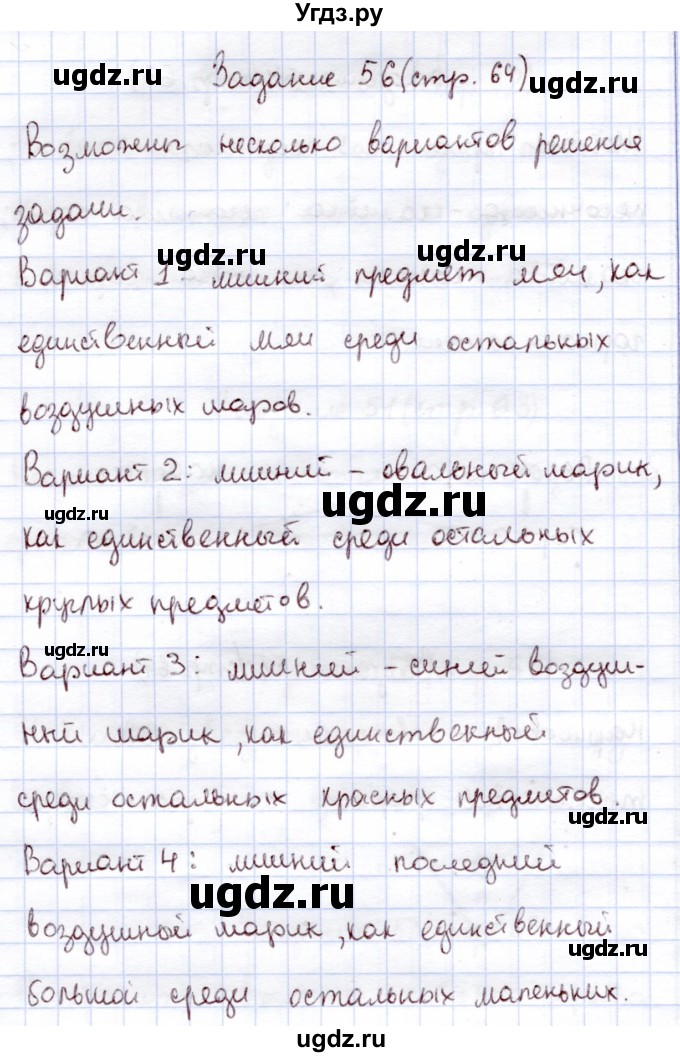 Угдз.ру
ugdz.ru Задание 56(стр. 64) ugdz.ru
Возможны несколько вариантов решения
задачи.
ugdz.ru ugdz.ru
Вариант 1: лишний предмет мяч, как
единственный мяч среди остальных
воздушных шаров.
Вариант 2: лишний - овальный шарик,
ugdz.ru ugdz.ru
как единственный среди остальных
круглых предметов.
ugdz.ru ugdz.ru
Вариант 3: лишний - синий воздуш-
ный шарик, как единственный
среди остальных красных предметов.
ugdz.ru
Вариант 4: лишний последний
ugdz.ru
воздушный шарик, как единственный
ugdz.ru
большой среди остальных маленьких.
ugdz.ru